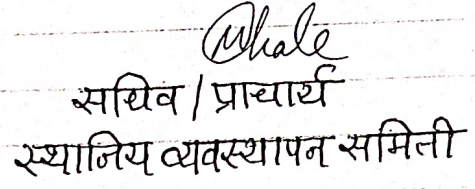 सचिव / प्राचार्य
स्थानिय व्यवस्थापन समिती